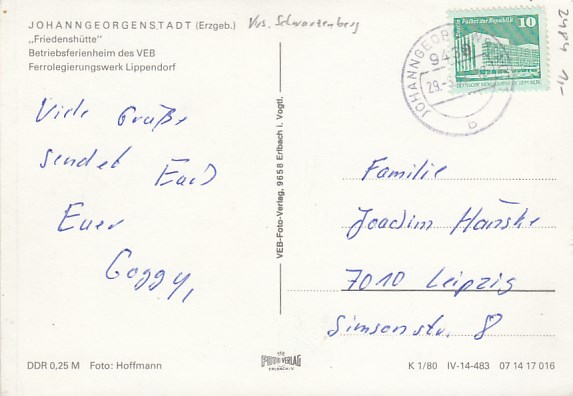 JOHANNGEORGENSTADT (Erzgeb.)
„Friedenshütte"
Betriebsferienheim des VEB
Ferrolegierungswerk Lippendorf
Krs. Schwarzenberg
2484 1,-
10
9438
29.
b
Viele Grüße
sendet Euch
Euer
Goggy,
VEB-Foto-Verlag, 9658 Erlbach i. Vogtl.
Familie
Joachim Hänske
7010 Leipzig
Simsonstr. 8
DDR 0,25 M Foto: Hoffmann
VEB
FOTO-VERLAG
ERLBACH/V.
K 1/80 IV-14-483 07 14 17 016